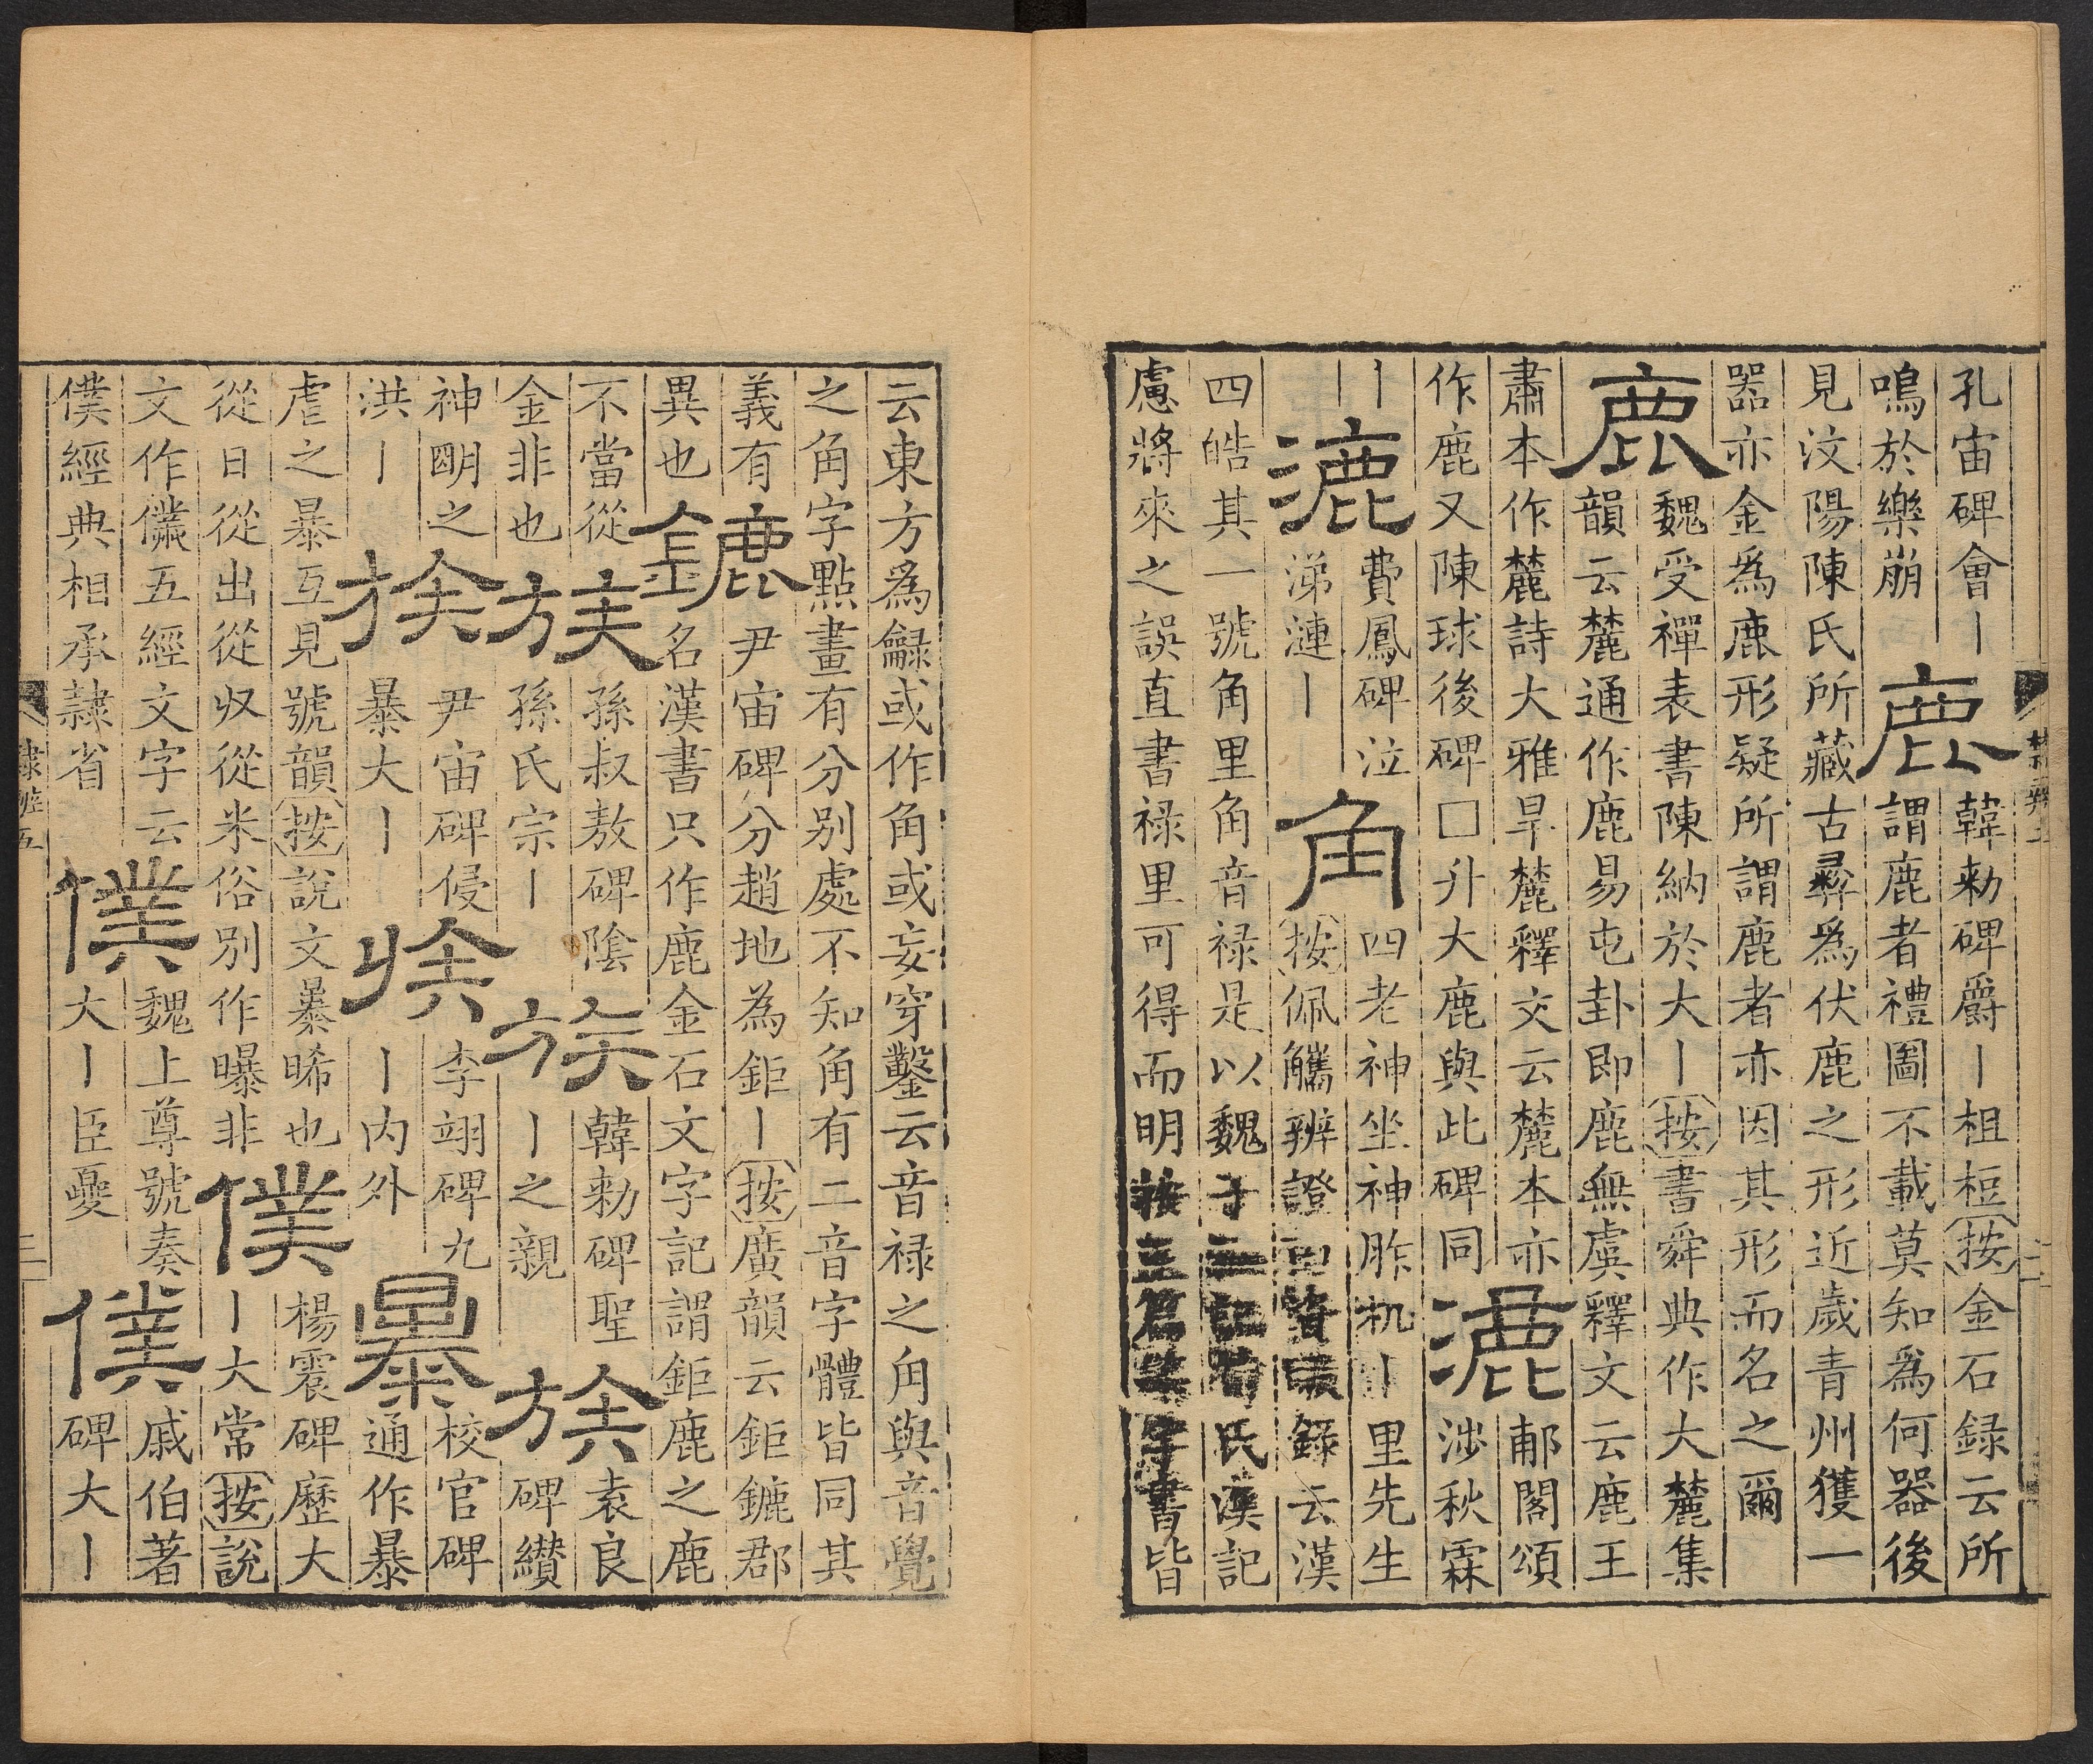 孔宙碑會｜
鳴於樂崩
鹿
韓勑碑爵｜柤梪按金石録云所
謂鹿者禮圖不載莫知爲何器後
見汶陽陳氏所藏古彛爲伏鹿之形近歲青州獲一
器亦金爲鹿形疑所謂鹿者亦因其形而名之爾
鹿
魏受禪表書陳納於大｜按書舜典作大麓集
韻云麓通作鹿易屯卦即鹿無虞釋文云鹿王
肅本作麓詩大雅旱麓釋文云麓本亦
作鹿又陳球後碑□升大鹿與此碑同
漉
郙閣頌
涉秋霖
｜
漉
費鳳碑泣
涕漣｜
角
四老神坐神胙机｜里先生
按佩觿辨證曰資暇録云漢
四皓其一號角里角音禄是以魏子氏漢記
慮將來之誤直書禄里可得而明按字書皆
云東方爲龣或作角或妄穿鑿云音禄之甪與音覺
之角字點畫有分別處不知角有二音字體皆同其
義有
異也
鏕
尹宙碑分趙地為鉅｜按廣韻云鉅鏕郡
名漢書只作鹿金石文字記謂鉅鹿之鹿
不當從
金非也
族
孫叔敖碑陰
孫氏宗｜
族
韓勑碑聖
｜之親
族
袁良
碑纘
神朙之
洪｜
族
尹宙碑侵
暴大｜
族
李翊碑九
｜内外
暴
校官碑
通作暴
虐之暴互見號韻按說文暴晞也
從日從出從収從米俗別作曝非
僕
楊震碑歷大
｜大常按說
文作㒒五經文字云
僕經典相承隸省
僕
魏上尊號奏
大｜臣夔
僕
戚伯著
碑大｜